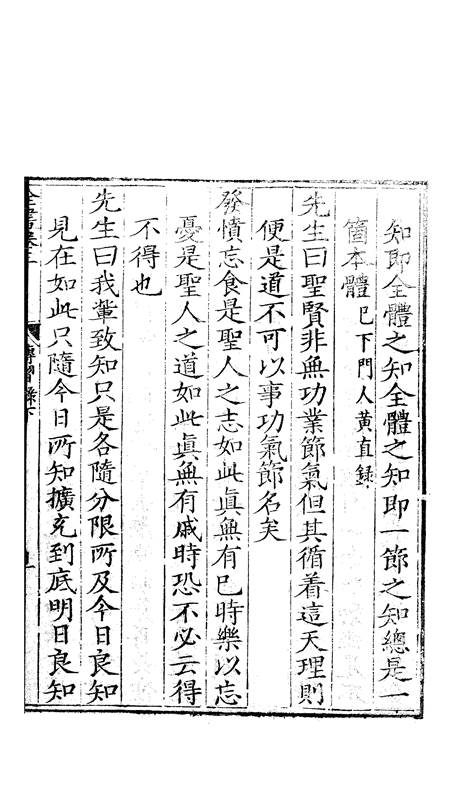 知即全體之知全體之知即一節之知總是一
箇本體已下門人黃直録
先生曰聖賢非無功業節氣但其循着這天理則
便是道不可以事功氣節名矣
發憤忘食是聖人之志如此眞無有已時樂以忘
憂是聖人之道如此眞無有戚時恐不必云得
不得也
先生曰我輩致知只是各隨分限所及今日良知
見在如此只隨今日所知擴充到底明日良知
全書卷三
傳習錄下